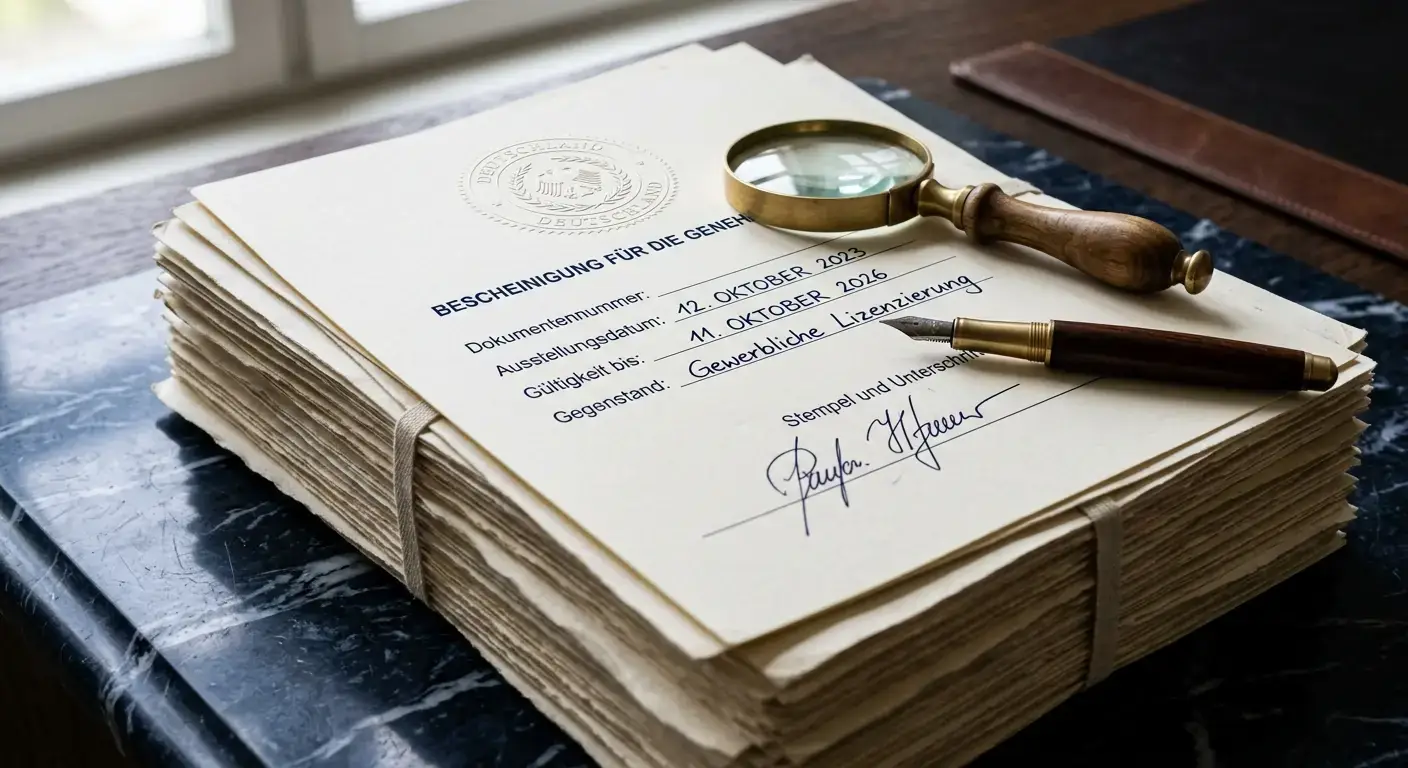 DEUTSCHLAND
DEUTSCHLAND
BESCHEINIGUNG FÜR DIE GENEH
Dokumentennummer:
Ausstellungsdatum: 12. OKTOBER 2023
Gültigkeit bis: 11. OKTOBER 2026
Gegenstand: Gewerbliche Lizenzierung
Stempel und Unterschrif